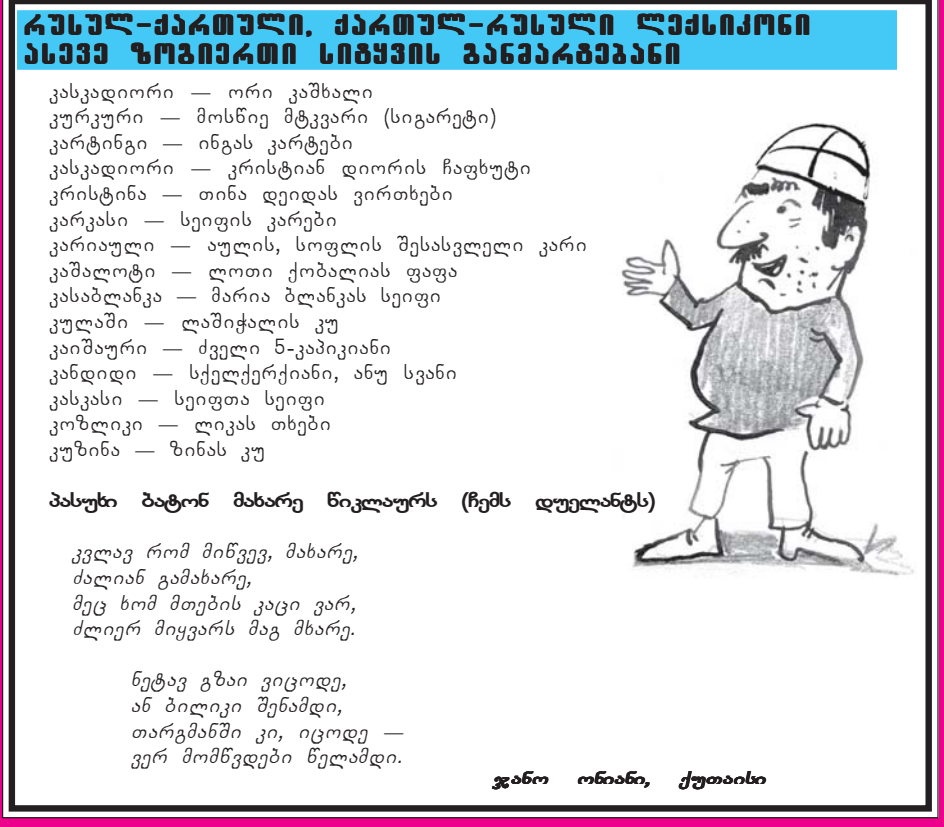 რუსულ-ქართული, ქართულ-რუსული ლექსიკონი
ასევე ზოგიერთი სიტყვის განმარტებანი
კასკადიორი — ორი კაშხალი
კურკური — მოსწიე მტკვარი (სიგარეტი)
კარტინგი — ინგას კარტები
კასკადიორი — კრისტიან დიორის ჩაფხუტი
კრისტინა — თინა დეიდას ვირთხები
კარკასი — სეიფის კარები
კარიაული — აულის, სოფლის შესასვლელი კარი
კაშალოტი — ლოთი ქობალიას ფაფა
კასაბლანკა — მარია ბლანკას სეიფი
კულაში — ლაშიჭალის კუ
კაიშაური — ძველი 5-კაპიკიანი
კანდიდი — სქელქერქიანი, ანუ სვანი
კასკასი — სეიფთა სეიფი
კოზლიკი — ლიკას თხები
კუზინა — ზინას კუ
პასუხი ბატონ მახარე წიკლაურს (ჩემს დუელანტს)
კვლავ რომ მიწვევ, მახარე,
ძალიან გამახარე,
მეც ხომ მთების კაცი ვარ,
ძლიერ მიყვარს მაგ მხარე.
ნეტავ გზაი ვიცოდე,
ან ბილიკი შენამდი,
თარგმანში კი, იცოდე —
ვერ მომწვდები წელამდი.
ჯანო ონიანი, ქუთაისი